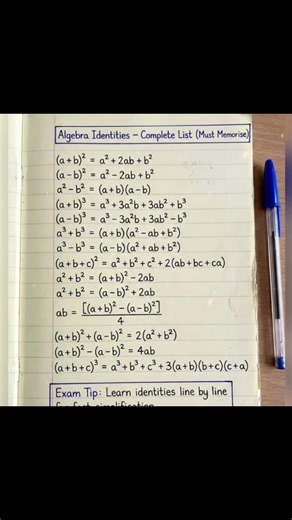 Algebra Identities – Complete List (Must Memorise)
(a+b)² = a² + 2ab + b²
(a−b)² = a² − 2ab + b²
a² − b² = (a+b)(a−b)
(a+b)³ = a³ + 3a²b + 3ab² + b³
(a−b)³ = a³ − 3a²b + 3ab² − b³
a³ + b³ = (a+b)(a² − ab + b²)
a³ − b³ = (a−b)(a² + ab + b²)
(a+b+c)² = a² + b² + c² + 2(ab+bc+ca)
a² + b² = (a+b)² − 2ab
a² + b² = (a−b)² + 2ab
ab = [(a+b)² − (a−b)²] / 4
(a+b)² + (a−b)² = 2(a² + b²)
(a+b)² − (a−b)² = 4ab
(a+b+c)³ = a³ + b³ + c³ + 3(a+b)(b+c)(c+a)
Exam Tip: Learn identities line by line